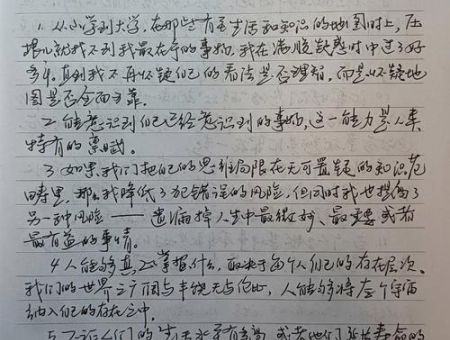 1. 从小学到大学,在那些有着生活和知识的地图时上,压
根儿就找不到我最在乎的事物,我在满腹疑惑时中过了好
多年。直到我不再怀疑自己的看法是否理智,而是怀疑地
图是否全面可靠。
2. 能意识到自己已经意识到的事物,这一能力是人类
特有的禀赋。
3. 如果我们把自己的思维局限在无可置疑的知识范
畴里,那么我降低了犯错误的风险,但同时我也提高了
另一种风险——遗漏掉人生中最微妙、最重要或者
最有益的事情。
4. 人能够真正掌握什么,取决于每个人自己的存在层次。
我们的世界之广阔与丰饶无与伦比,人能够将整个宇宙
纳入自己的存在之中。
5. 不论人们的生活水平有多高,或者他们